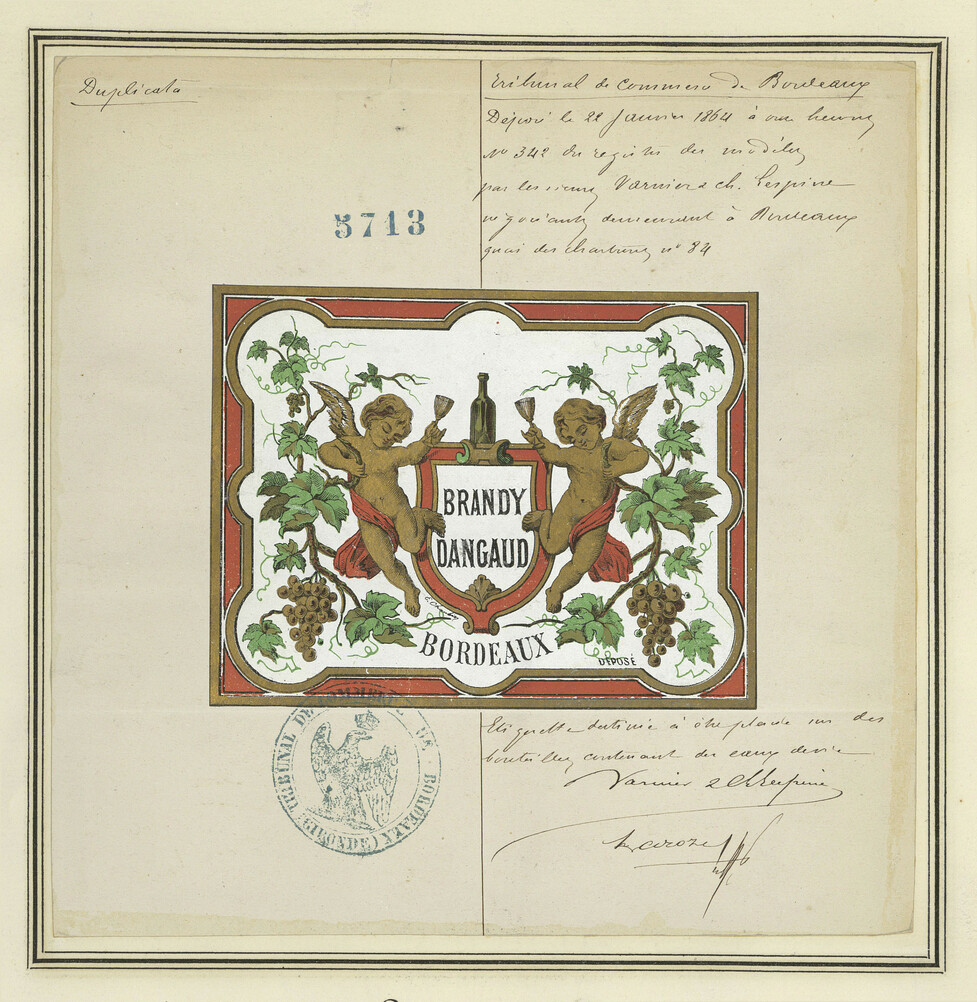 Duplicata
Tribunal de Commerce de Bordeaux
Déposé le 22 Janvier 1864 à onze heures
N° 342 du registre des modèles
par les sieurs Varnier & ch. Lespine
négociants demeurant à Bordeaux
quai des chartrons n° 84
5713
BRANDY
DANGAUD
BORDEAUX
DÉPOSÉ
TRIBUNAL DE COMMERCE DE BORDEAUX
(GIRONDE)
Etiquette destinée à être placée sur des
bouteilles contenant des eaux de vie
Varnier & Ch Lespine